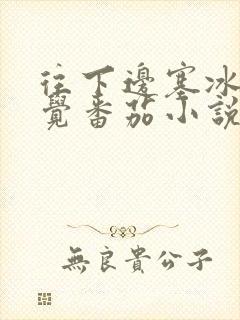 往下邊塞冰
覺番茄小說
無良貴公子